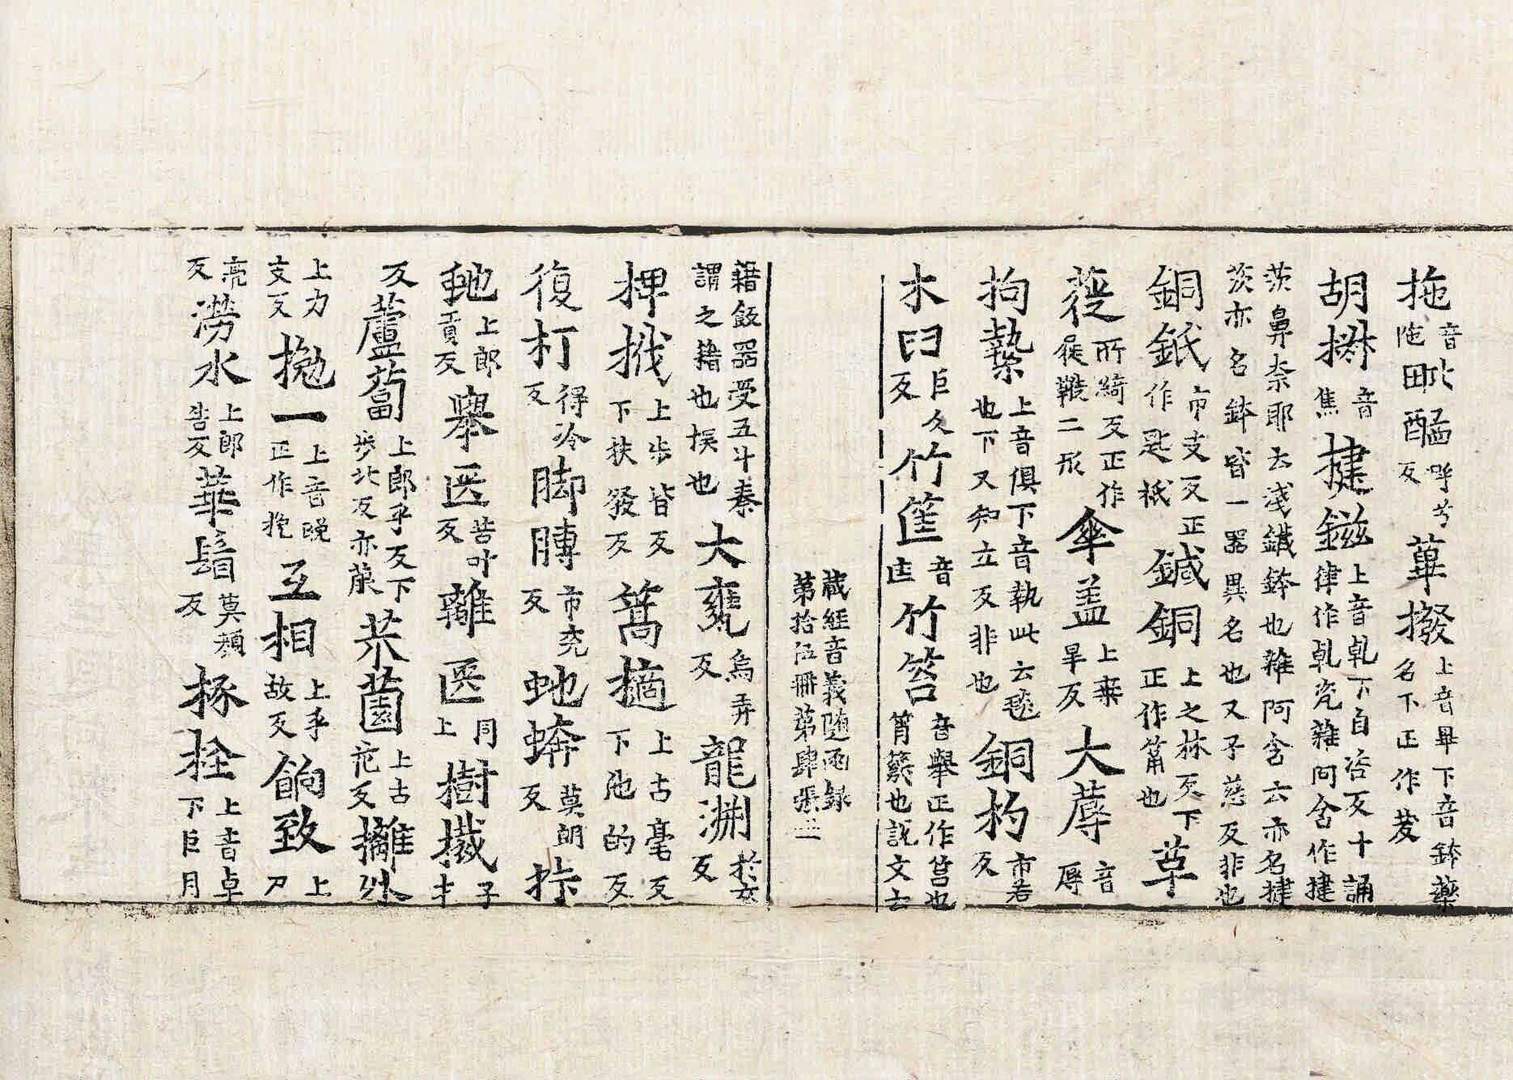 拖音陁㽛醯呼兮反蓽撥上音畢下音鉢藥名下正作茇
胡㯕音焦揵鎡上音乹下自咨反十誦律作乹瓷雜阿含作揵
茨鼻柰耶云淺鐵鉢也雜阿含云亦名揵茨亦名鉢皆一器異名也又子慈反非也
銅釽市支反正作匙䄎鍼銅上之林反下正作筩也草
蓰所綺反正作屣鞭二形傘盖上桒旱反大蓐音辱
拘蟄上音俱下音執此云毯也下又知立反非也銅杓市若反
木臼巨久反竹筐音𠥓竹筥音舉正作筥也筲䉛也說文云
藏經音義隨函録第拾伍冊第肆張
籍飯器受五斗秦謂之籍也悮也大甕烏弄反龍渊於玄反
捭撥上步皆反下扶發反篙擿上古毫反下池的反
復打得冷反脚膞市兖反虵蟒莫朗反㧊
𧉮上郎貢反舉医苦叶反離医同上樹㩥子才
反蘆蔔上郎乎反下步北反亦菔苶菌上古花反攡外
上力支反㧾一上音晚正作挽互相上乎故反餉致上尸
亮反澇水上郎告反華鬘莫顔反椓拴上音卓下巨月